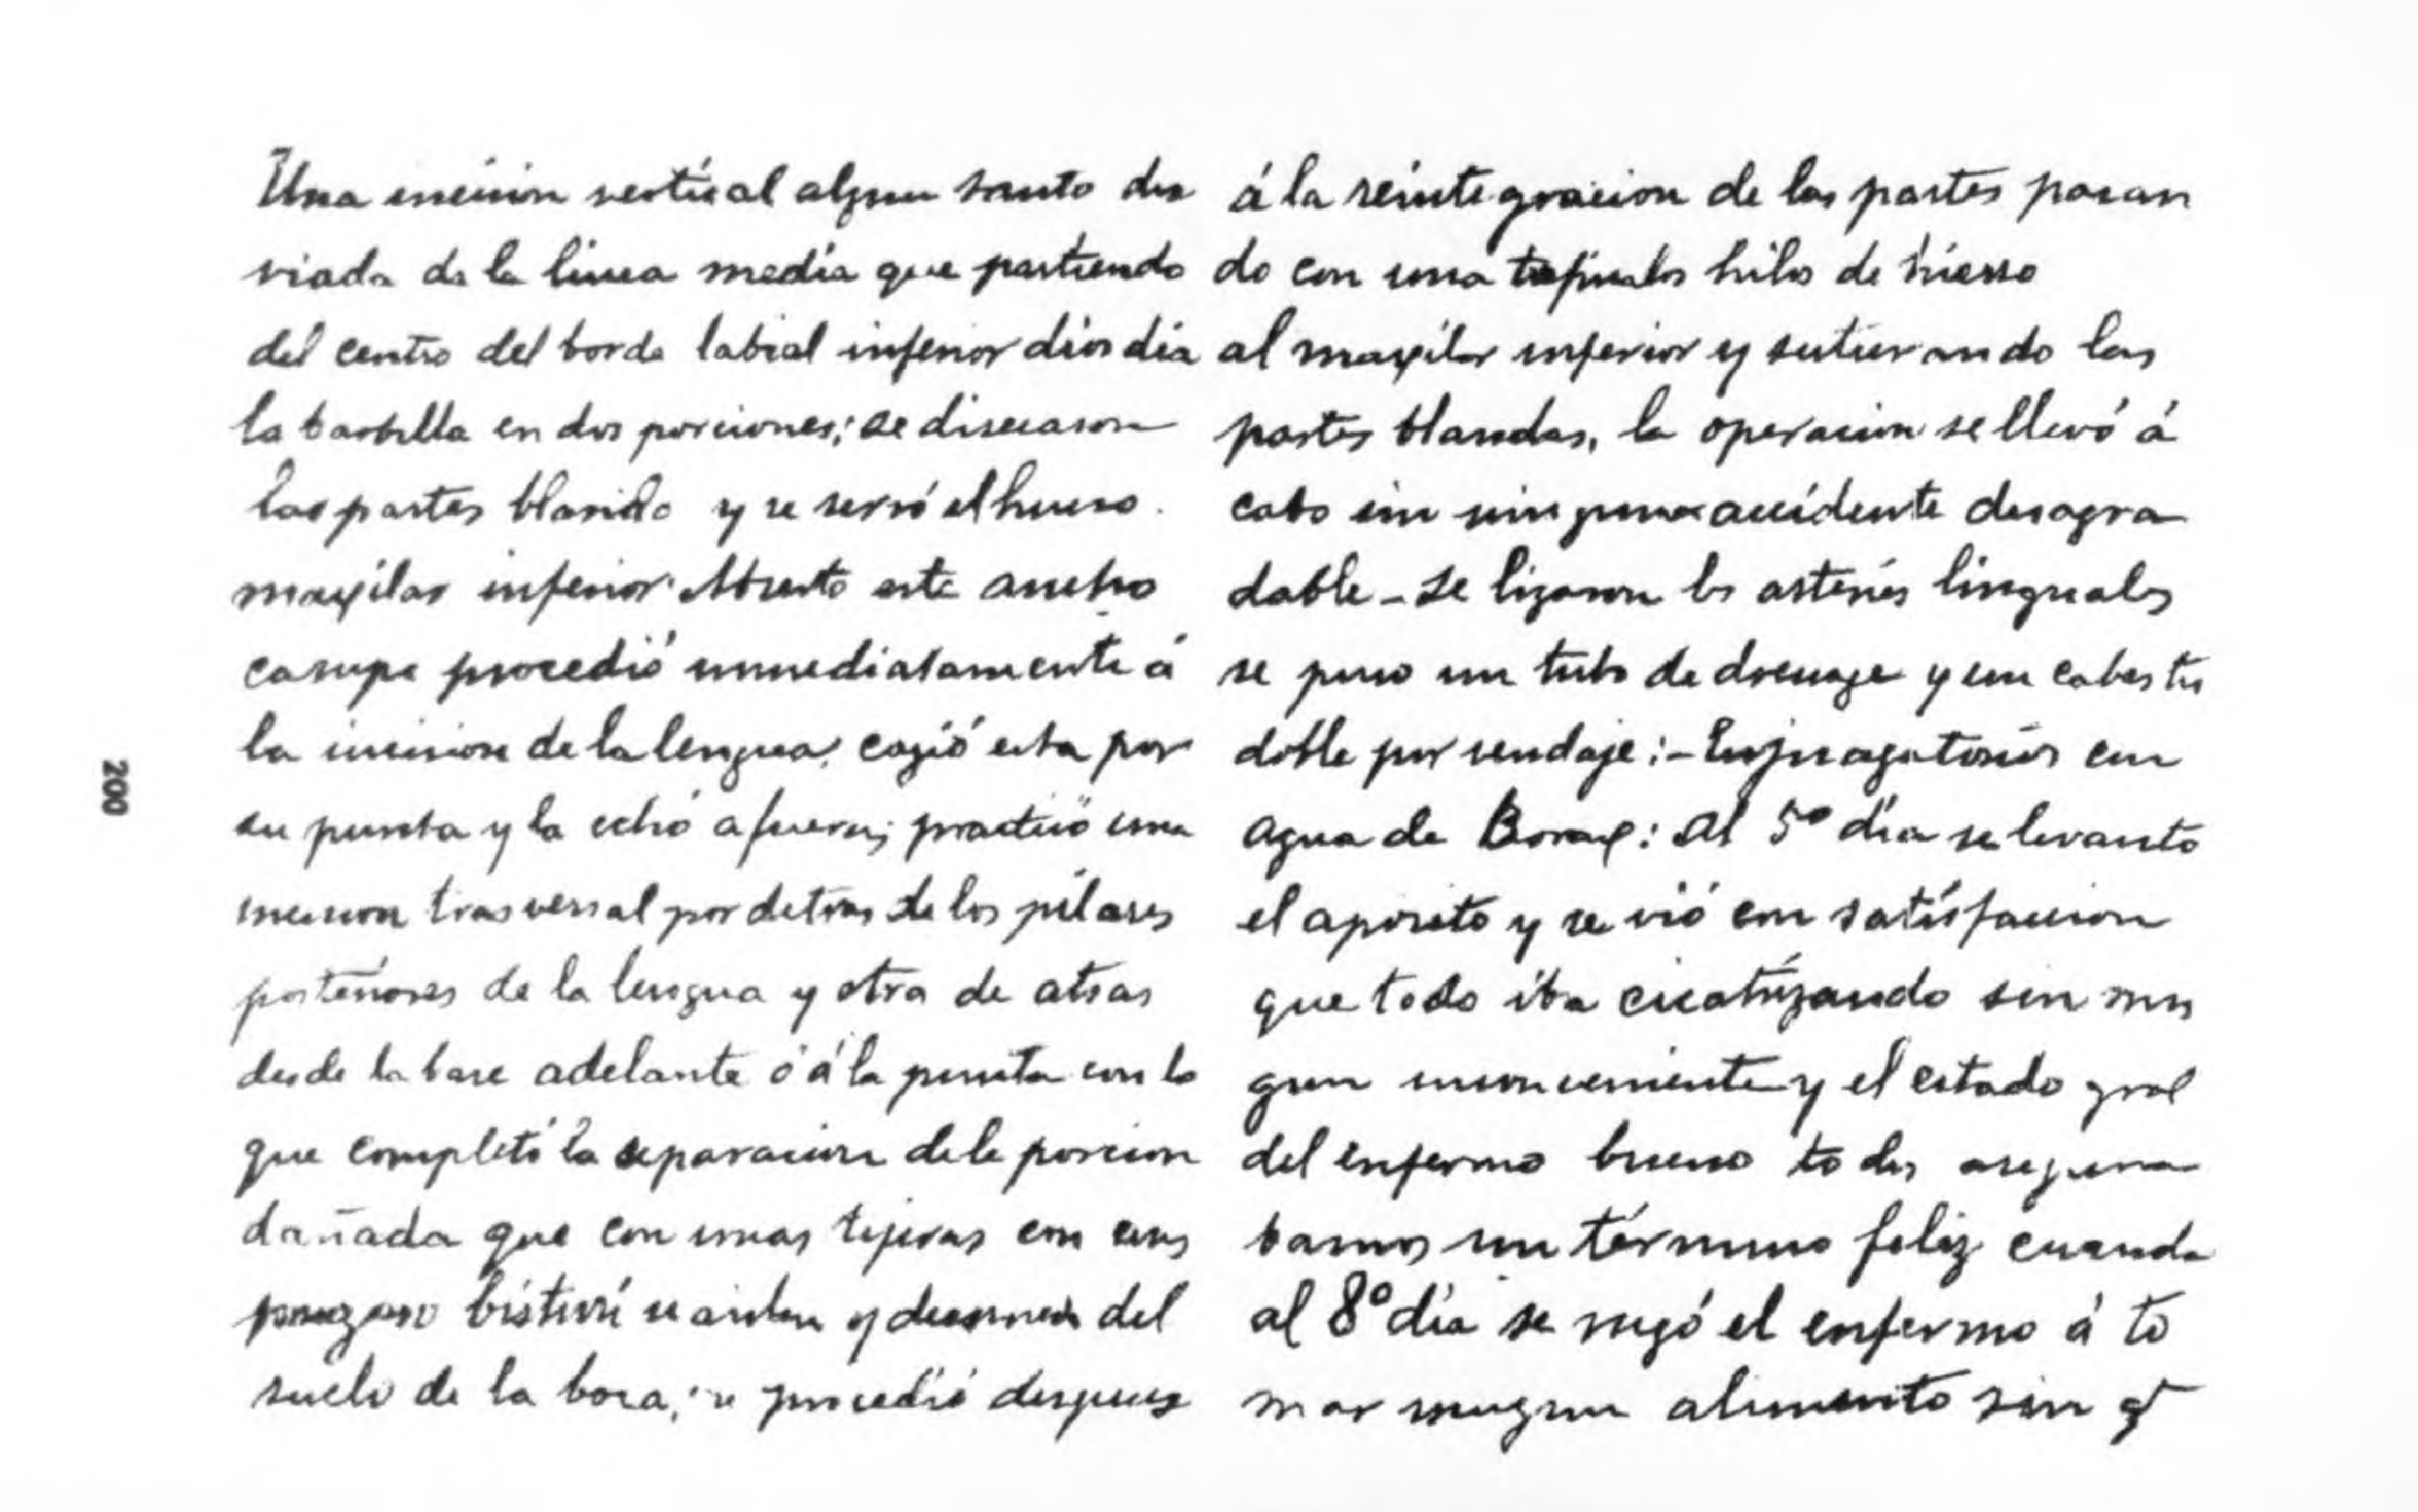 Una incision vertical algun tanto des
viada de la linea media que partiendo
del centro del borde labial inferior
la barbilla en dos porciones; se disecaron
las partes blandas y se serró el hueso
maxilar inferior. Abierto este ancho
campo procedió inmediatamente á
la incision de la lengua, cogió esta por
su punta y la echó afuera; practicó una
incision trasversal por detras de los pilares
posteriores de la lengua y otra de atras
desde la base adelante ó á la punta con lo
que completó la separacion de la porcion
dañada que con unas tijeras
bisturí y del
suelo de la boca; se procedió despues
á la reintegracion de las partes pasan
do con una hilos de hierro
al maxilar inferior y suturando las
partes blandas, la operacion se llevó á
cabo sin accidente desagra
dable - Se ligaron las arterias linguales
se puso un tubo de drenage y un cabestro
doble por vendaje: - Enjuagatorios con
agua de Borax: Al 5º dia se levanto
el aposito y se vió con satisfaccion
que todo iba cicatrizando sin nin
gun inconveniente y el estado gral
del enfermo bueno todos asegura
bamos un término feliz cuando
al 8º dia se negó el enfermo á to
mar ningun alimento sin
200